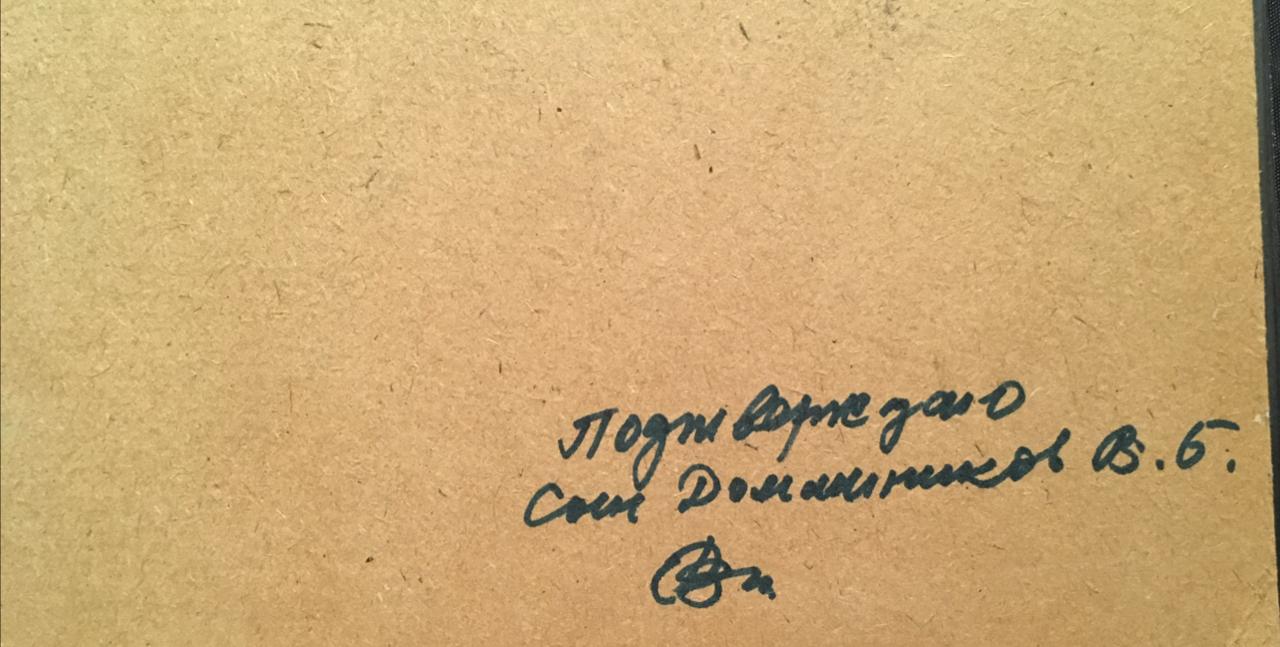 Подтверждаю
Сын Домашников В.Б.